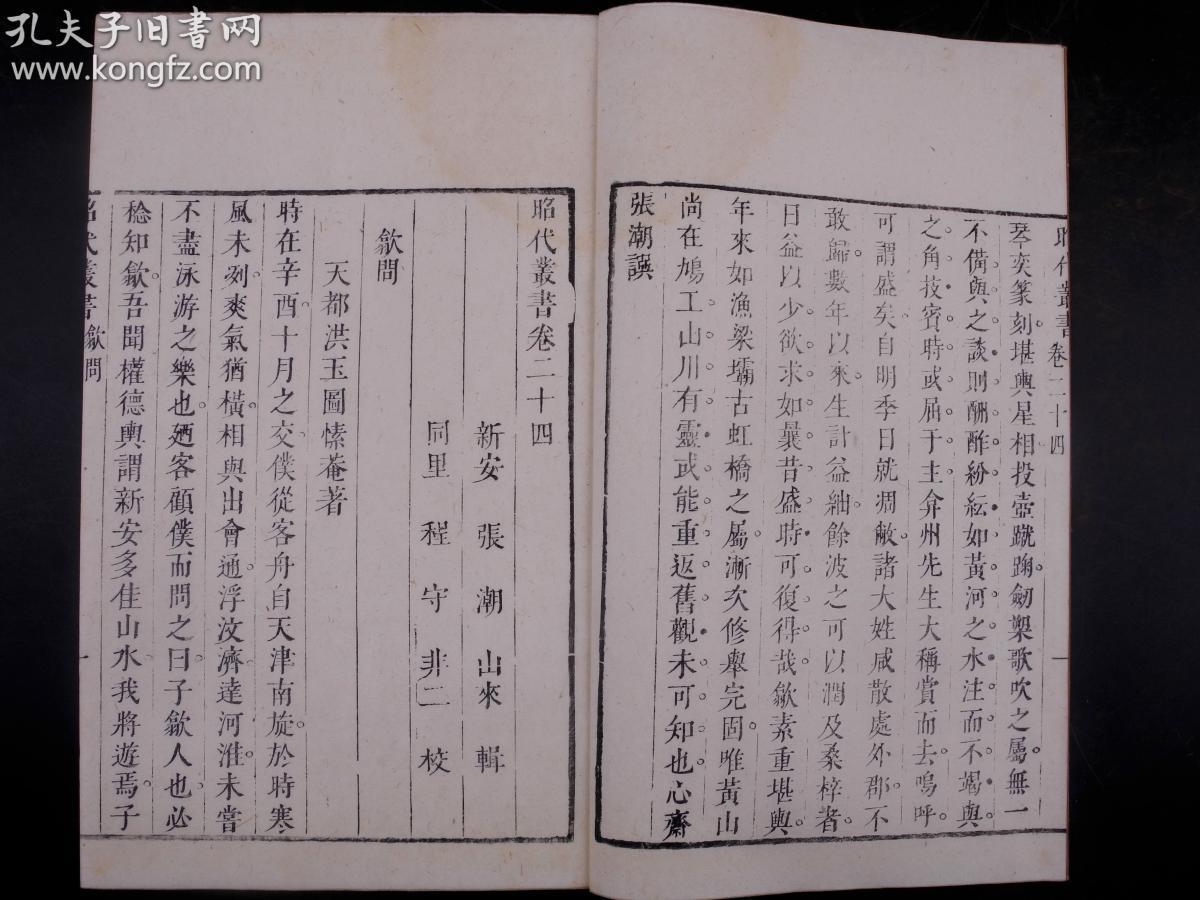 孔夫子旧书网
www.kongfz.com
昭代叢書 卷二十四 一
琴奕篆刻堪輿星相投壺蹴踘劒槊歌吹之屬無一
不備與之談則酬酢紛紜如黃河之水注而不竭與
之角技賓時或屈于主弇州先生大稱賞而去嗚呼
可謂盛矣自明季日就凋敝諸大姓咸散處外郡不
敢歸數年以來生計益紬餘波之可以潤及桑梓者
日益以少欲求如曩昔盛時可復得哉歙素重堪輿
年來如漁梁壩古虹橋之屬漸次修舉完固唯黃山
尚在鳩工山川有靈或能重返舊觀未可知也心齋
張潮譔
昭代叢書卷二十四
新安 張 潮 山來 輯
同里 程 守 非二 校
歙問
天都洪玉圖愫菴著
時在辛酉十月之交僕從客舟自天津南旋於時寒
風未冽爽氣猶橫相與出會通浮汶濟達河淮未嘗
不盡泳游之樂也廼客顧僕而問之曰子歙人也必
稔知歙吾聞權德輿謂新安多佳山水我將遊焉子
昭代叢書 歙問 一